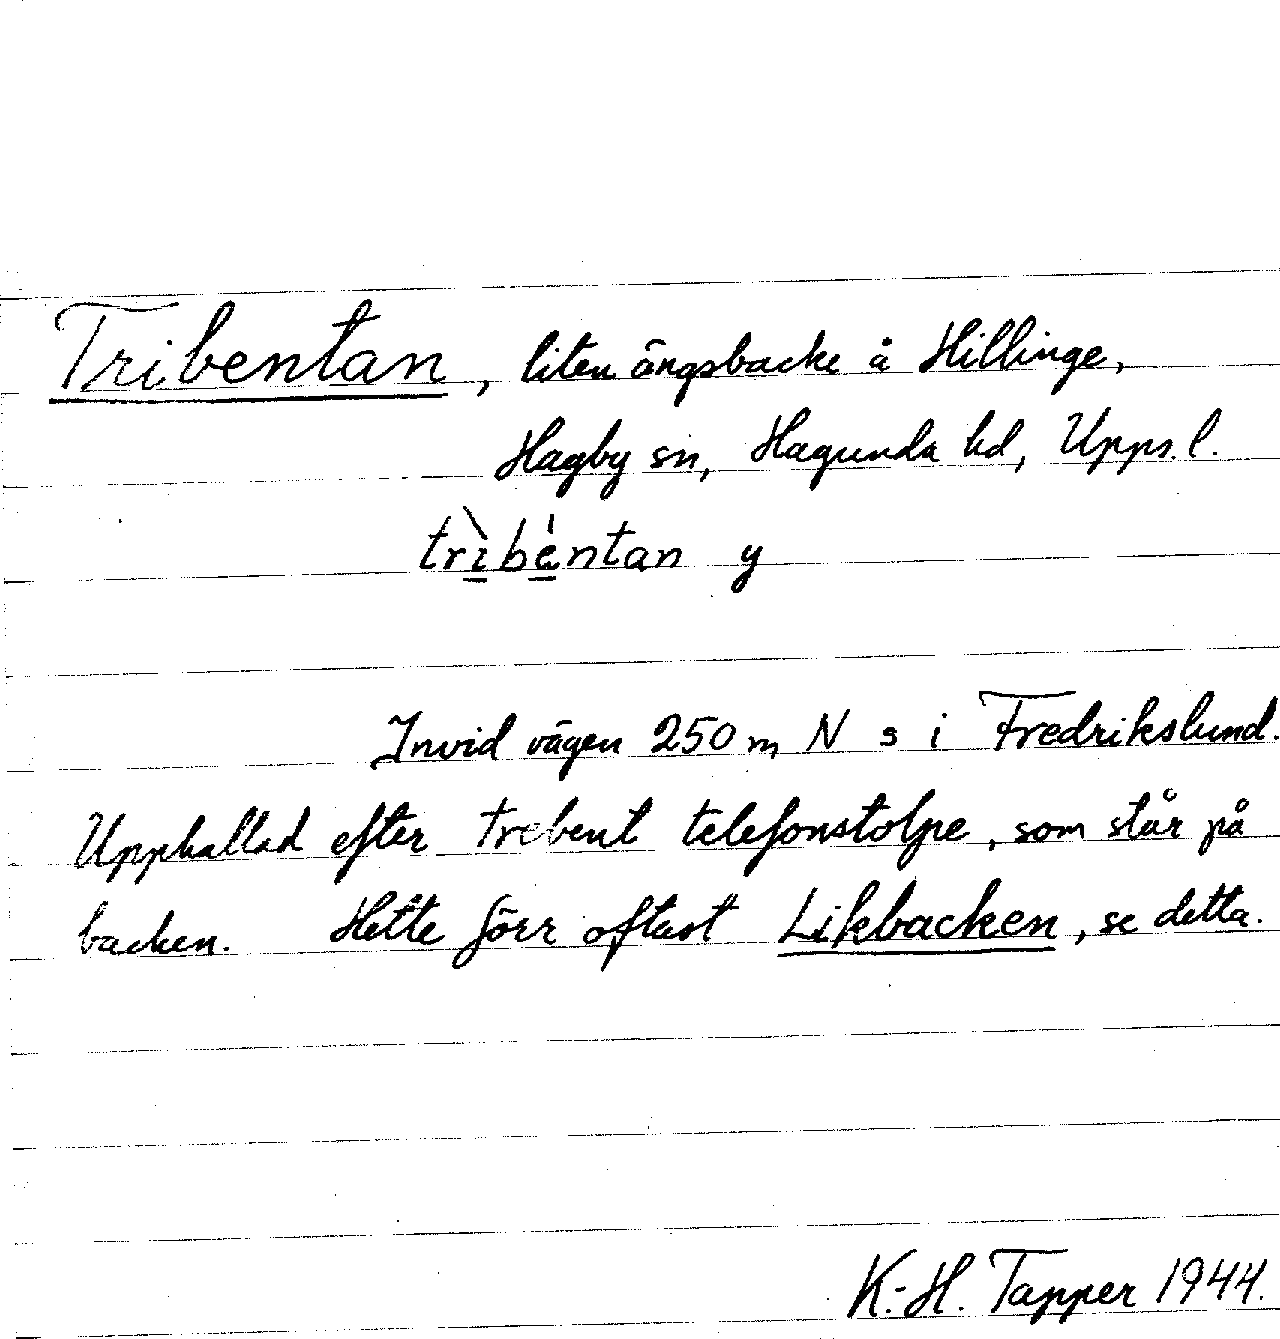 Tribentan, liten ängsbacke å Hillinge,
Hagby sn, Hagunda hd, Upps. l.
trìbéntan y
Invid vägen 250 m N s i Fredrikslund.
Uppkallad efter trebent telefonstolpe, som står på
backen. Hette förr oftast Likbacken, se detta.
K.-H. Tapper 1944.